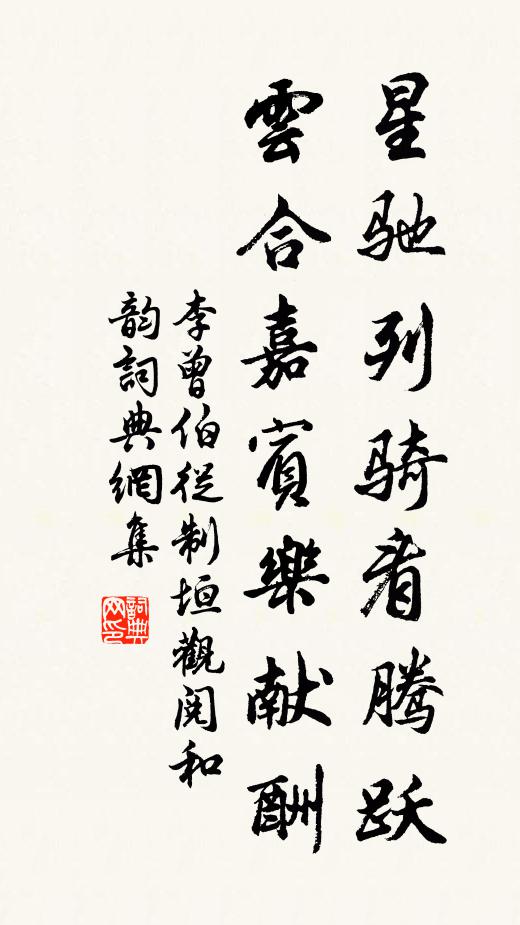 星驰列骑看腾跃
雲合嘉賓樂献酬
李曾伯從制垣觀閱和
韵詞典網集
詞典
网印